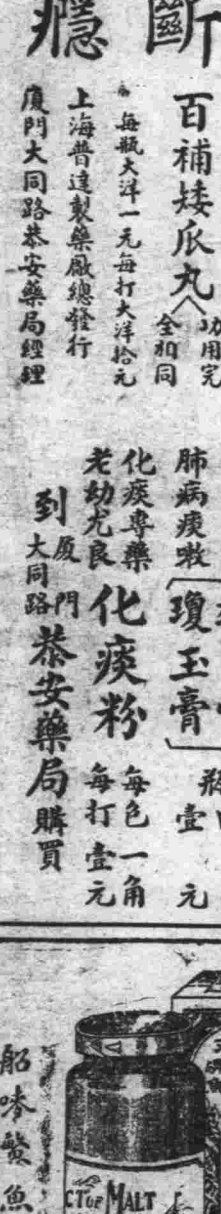 斷癮
百補矮瓜丸
功用完
全相同
每瓶大洋一元每打大洋拾元
上海普達製藥廠總發行
廈門大同路恭安藥局經理
肺病痰嗽
瓊玉膏
壹元
化痰專藥
老幼尤良
化痰粉
每包一角
每打壹元
到廈門
大同路
恭安藥局購買
魚
MALT